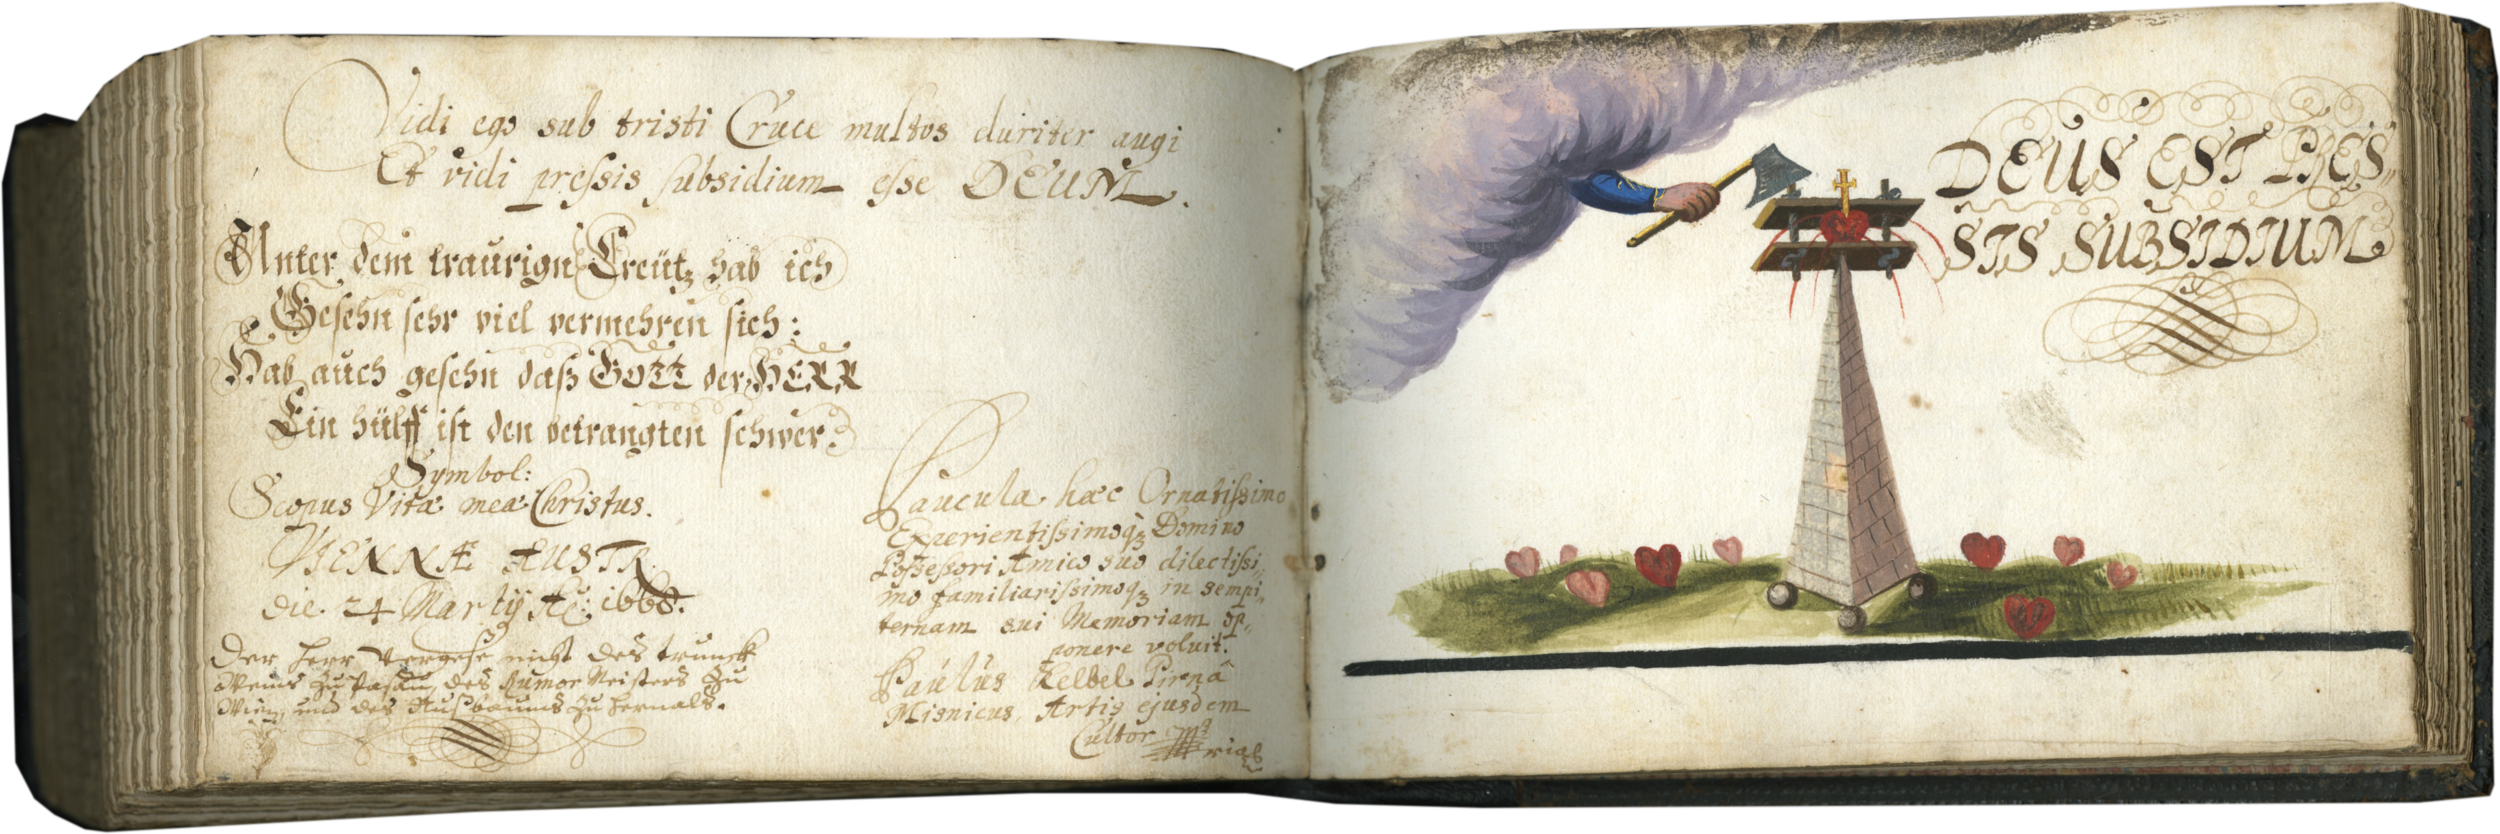 Vidi ego sub tristi Cruce multos duriter augi
Et vidi preſsis ſubsidium eſse DEUM.
Unter dem traurign Creütz hab ich
Geſehn ſehr viel vermehren ſich:
Hab auch geſehn daß GOTT der HERR
Ein hülff iſt den betrangten ſchwer.
Symbol:
Scopus Vitæ meæ Christus.
VIENNÆ AUSTR.
die 24 Martij Aõ: 1668.
Der Herr Vergeſe nicht des trunckh
Weins Zu Paſau, des Rumor Meisters Zu
Wien, und des Nuſbaums Zu Hernals.
Paucula hæc Ornatiſsimo
Experientiſsimoqꝫ Domino
Poſseſsori Amico suo dilectiſsi,,
mo familiariſsimoqꝫ in sempi,,
ternam sui Memoriam op,,
ponere voluit.
Paulus Kelbel Pirnâ
Misnicus, Artis ejusdem
Cultor
DEUS EST PRES,,
SIS SUBSIDIUM